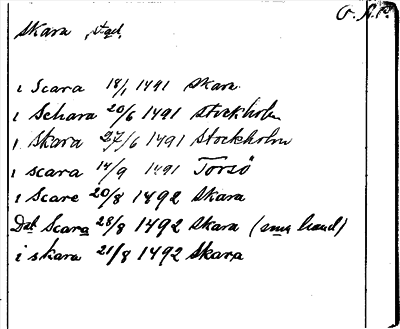 O. A. P.
Skara, stad.
i Scara 18/1 1491 Skara
i Schara 20/6 1491 Stockholm
i Skara 27/6 1491 Stockholm
i scara 14/9 1491 Torsö
i Scare 20/8 1492 Skara
Dat Scara 28/8 1492 Skara (sma hand)
i skara 21/8 1492 Skara